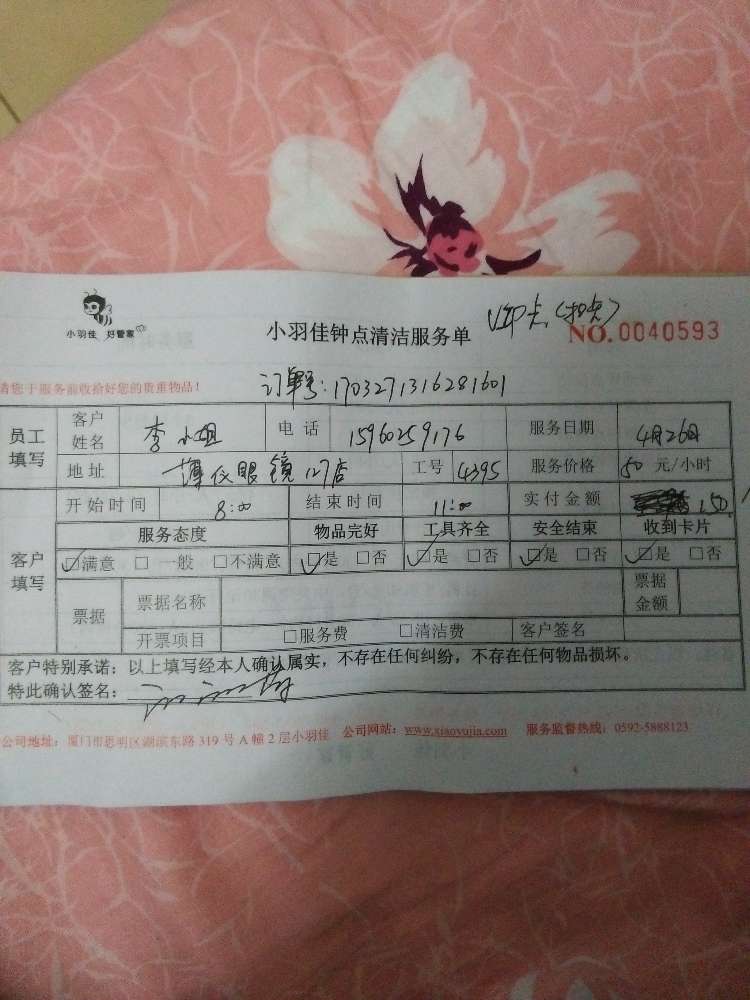 小羽佳 好管家
小羽佳钟点清洁服务单
VIP卡(扣卡)
NO.0040593
请您于服务前收拾好您的贵重物品!
订单号:1703271316281601
员工填写 客户姓名 李小姐 电话 15960259176 服务日期 4月26日
地址 博仪眼镜127店 工号 4395 服务价格 50元/小时
客户填写 开始时间 8:00 结束时间 11:00 实付金额 150
服务态度 物品完好 工具齐全 安全结束 收到卡片
☑满意 □一般 □不满意 ☑是 □否 ☑是 □否 ☑是 □否 ☑是 □否
票据 票据名称 票据金额
开票项目 □服务费 □清洁费 客户签名
客户特别承诺:以上填写经本人确认属实,不存在任何纠纷,不存在任何物品损坏。
特此确认签名:
公司地址:厦门市思明区湖滨东路319号A幢2层小羽佳 公司网站:www.xiaoyujia.com 服务监督热线:0592-5888123